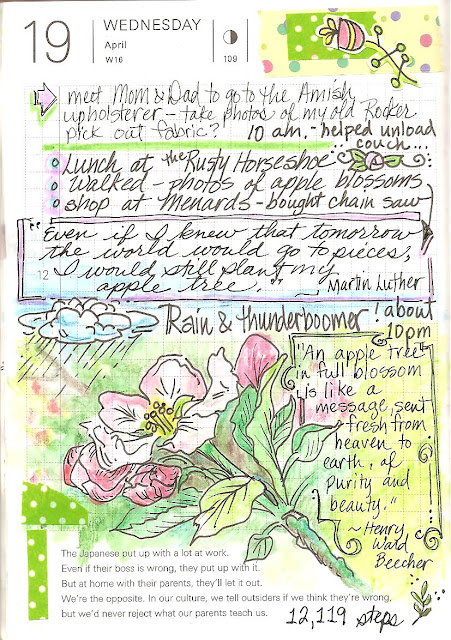 19
WEDNESDAY
April
W16
109
meet Mom & Dad to go to the Amish
upholsterer - take photos of my old Rocker
pick out fabric? 10 am. - helped unload
couch...
Lunch at the Rusty Horseshoe
Walked - photos of apple blossoms
shop at Menards - bought chain saw
"Even if I knew that tomorrow
the world would go to pieces,
12
I would still plant my
apple tree." ~ Martin Luther
Rain & thunderboomer! about
10pm
"An apple tree
in full blossom
is like a
message, sent
fresh from
heaven to
earth, of
purity and
beauty."
~ Henry
Ward
Beecher
The Japanese put up with a lot at work.
Even if their boss is wrong, they put up with it.
But at home with their parents, they'll let it out.
We're the opposite. In our culture, we tell outsiders if we think they're wrong,
but we'd never reject what our parents teach us.
12,119 steps